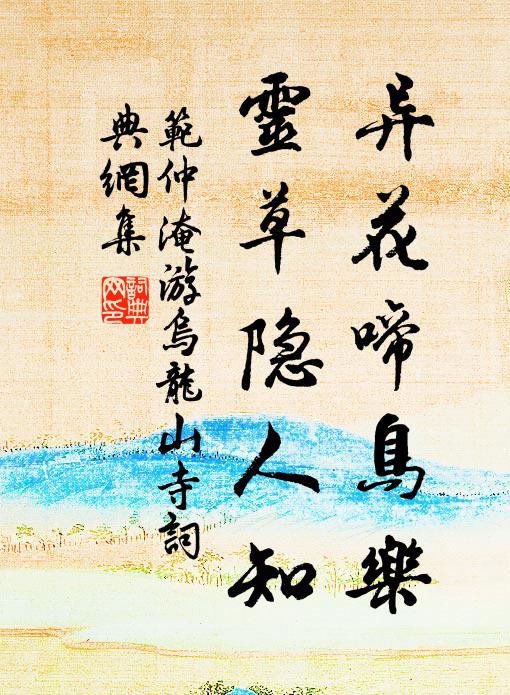 异花啼鳥樂
靈草隐人知
範仲淹游烏龍山寺詞
典網集
詞典网印